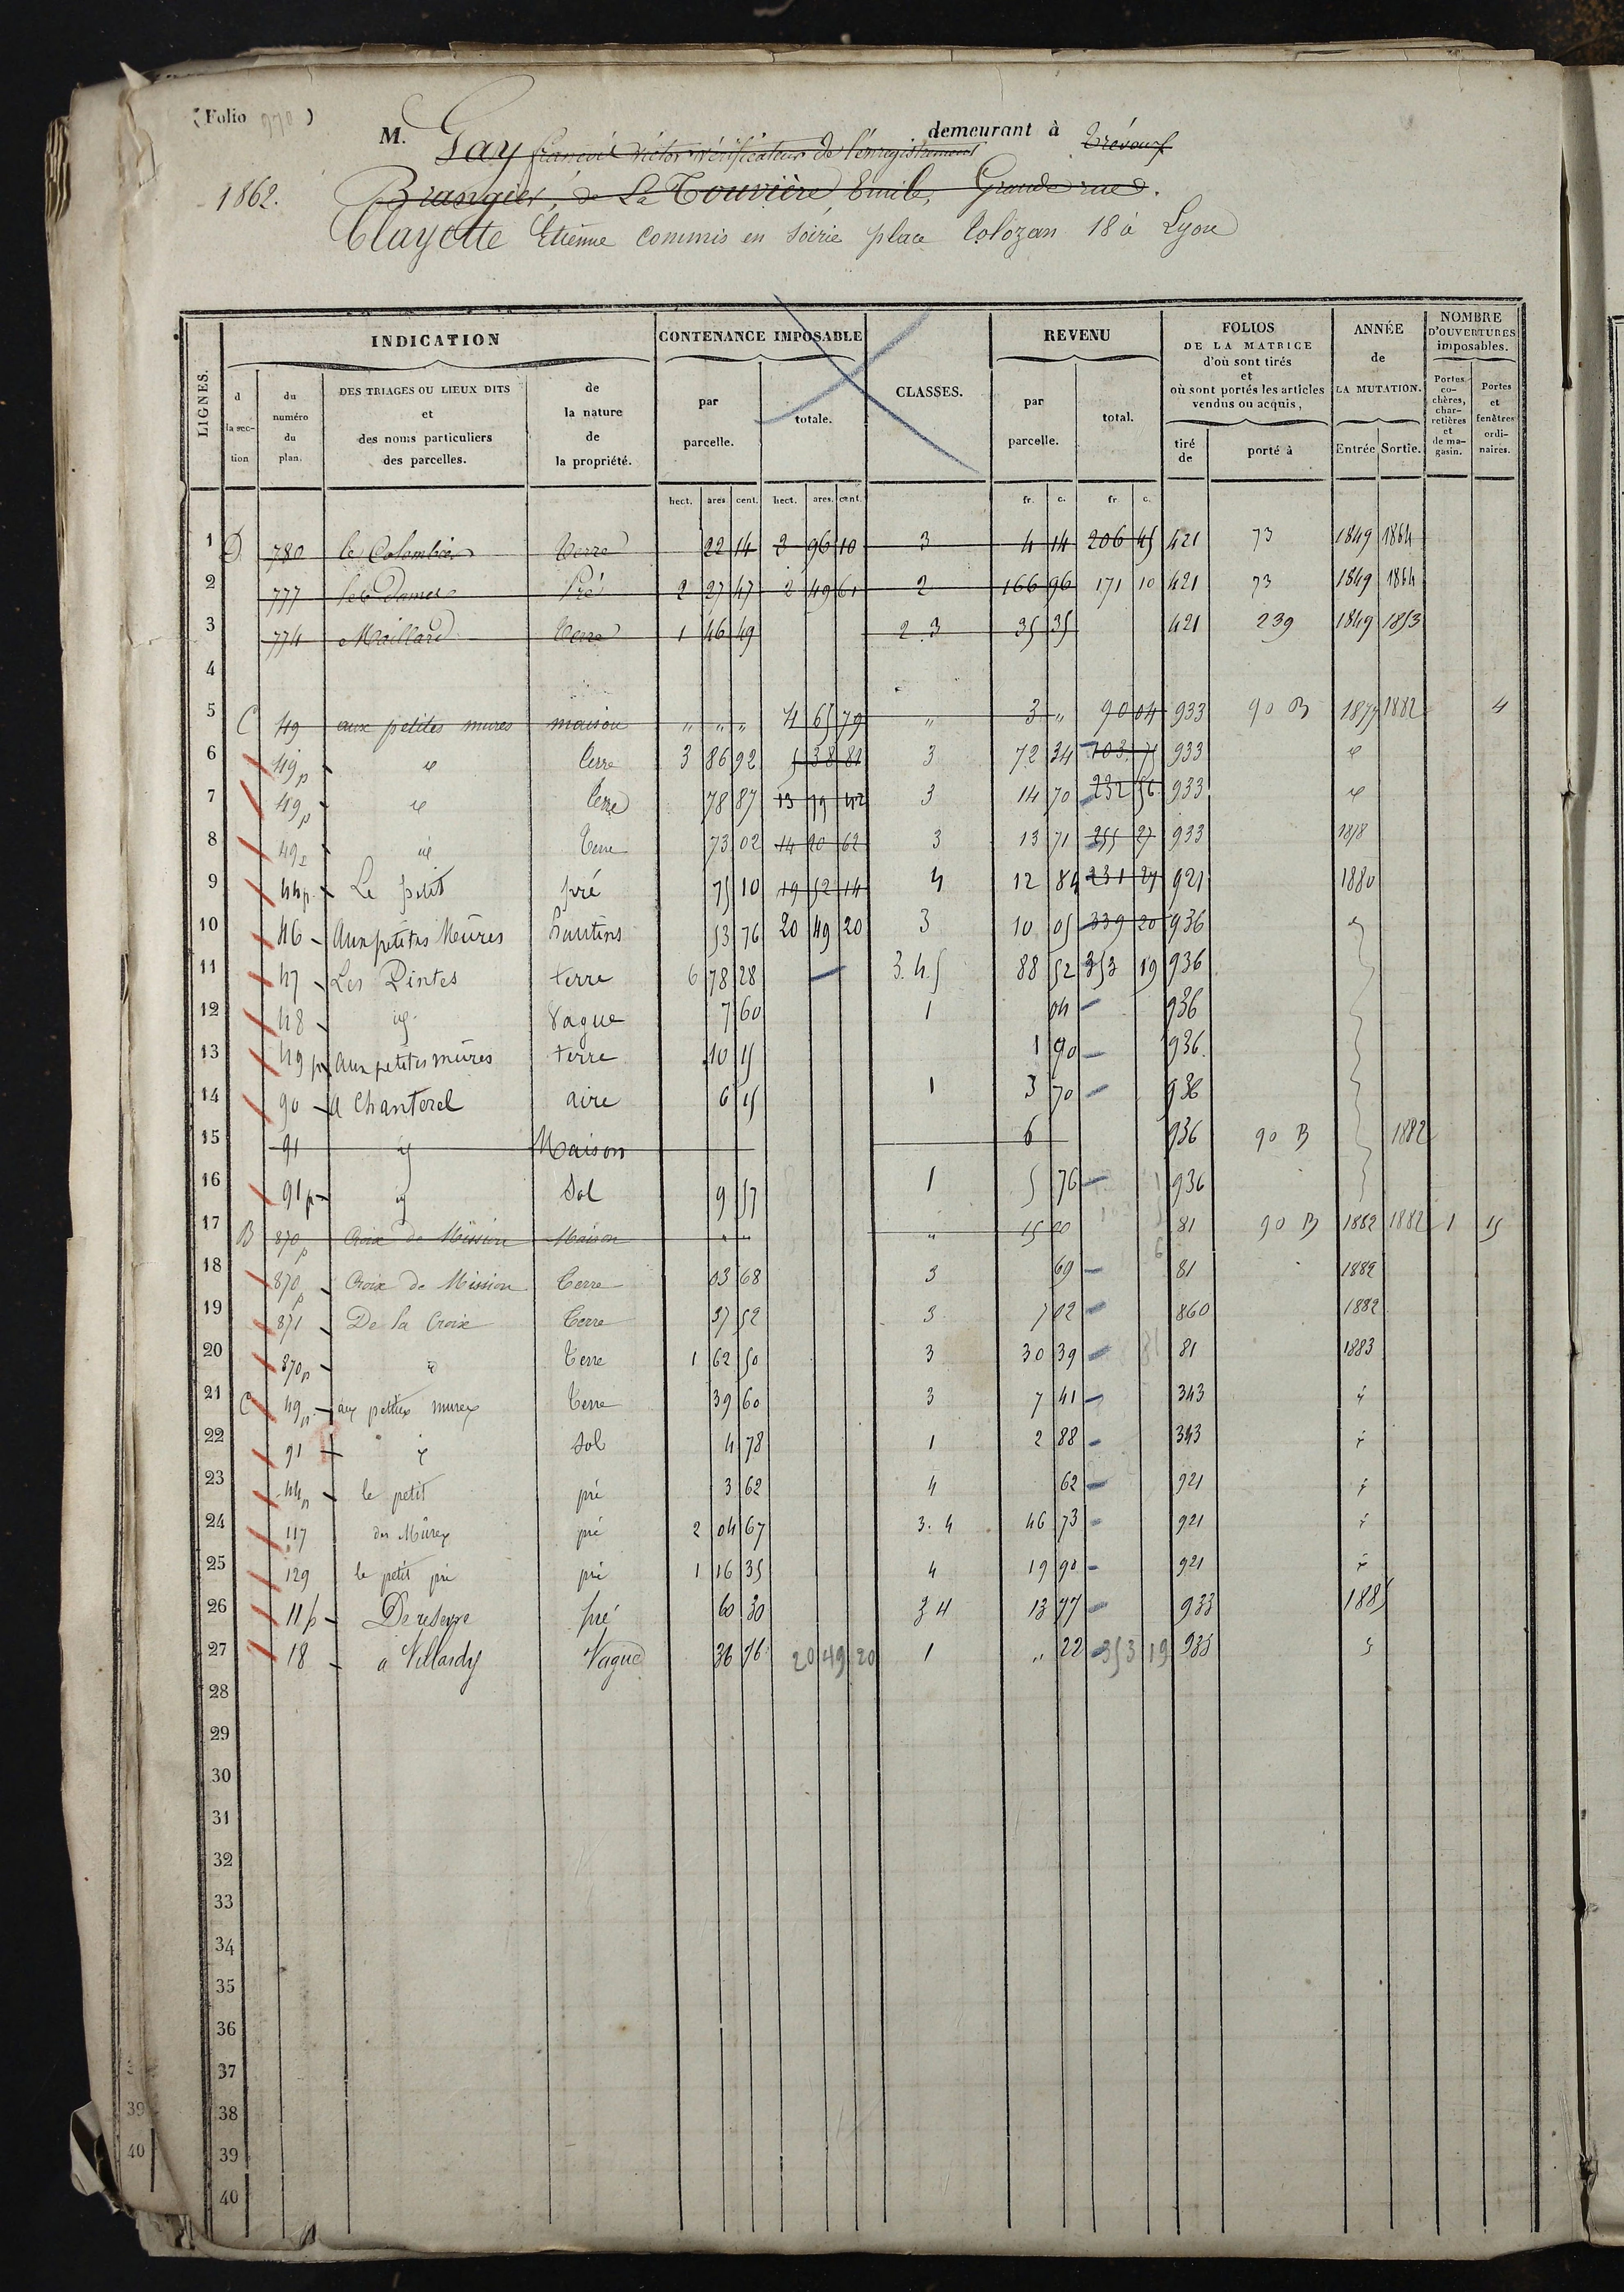 (Folio 970)
M. Gay françois victor vérificateur de l'enregistrement demeurant à Trévoux
1862. Brangier, de La Touvière Emile, Grande rue.
Clayette Etienne commis en soirie place Tolozan 18 à Lyon
LIGNES. INDICATION CONTENANCE IMPOSABLE CLASSES. REVENU FOLIOS DE LA MATRICE d'où sont tirés et où sont portés les articles vendus ou acquis, ANNÉE de LA MUTATION. NOMBRE D'OUVERTURES imposables.
d la section du numéro du plan. DES TRIAGES OU LIEUX DITS et des noms particuliers des parcelles. de la nature de la propriété. par parcelle. totale. par parcelle. total. tiré de porté à Entrée Sortie. Portes cochères, charretières et de magasin. Portes et fenêtres ordinaires.
hect. ares cent. hect. ares. cent. fr. c. fr c.
1 D 780 le Colombier Terre 22 14 2 96 10 3 4 14 206 45 421 73 1849 1864
2 777 les Dames Pré 2 27 47 2 49 61 2 166 96 171 10 421 73 1849 1864
3 774 Maillard Terre 1 46 49 2.3 35 35 421 239 1849 1853
4
5 C 49 aux petites mures maison " " " 4 65 79 " 3 " 90 04 933 90 B 1877 1882 4
6 49p id terre 3 86 92 5 38 81 3 72 34 103 75 933 id
7 49p id terre 78 87 13 79 42 3 14 70 232 56 933 id
8 49p id Terre 73 02 14 20 62 3 13 71 255 27 933 1878
9 44p Le petit pré 75 10 19 52 14 4 12 84 231 27 921 1880
10 46 Aux petites Mûres hautins 53 76 20 49 20 3 10 05 339 20 936
11 47 Les Pintes terre 6 78 28 3.4.5 88 52 353 19 936
12 48 id Vague 7 60 1 04 936
13 49p Aux petites mûres terre 10 15 1 90 936
14 90 A Chanterel aire 6 15 1 3 70 936
15 91 id Maison 6 936 90 B 1882
16 91p id Sol 9 57 1 5 76 936
17 B 870p Croix de Mission Maison " " " 15 00 81 90 B 1882 1882 1 15
18 870p Croix de Mission Terre 03 68 3 69 81 1882
19 871 De la Croix Terre 37 52 3 7 02 860 1882
20 870p id Terre 1 62 50 3 30 39 81 1883
21 C 49p aux petites mures Terre 39 60 3 7 41 343 id
22 91 id Sol 4 78 1 2 88 343 id
23 44p le petit pré 3 62 4 62 921 id
24 117 des Mûres pré 2 04 67 3.4 46 73 921 id
25 129 le petit pré pré 1 16 35 4 19 90 921 id
26 11p pré 60 30 3 4 13 77 933 1885
27 18 a Villardy Vague 36 76 20 49 20 1 " 22 353 19 935
28
29
30
31
32
33
34
35
36
37
38
39
40
39
40